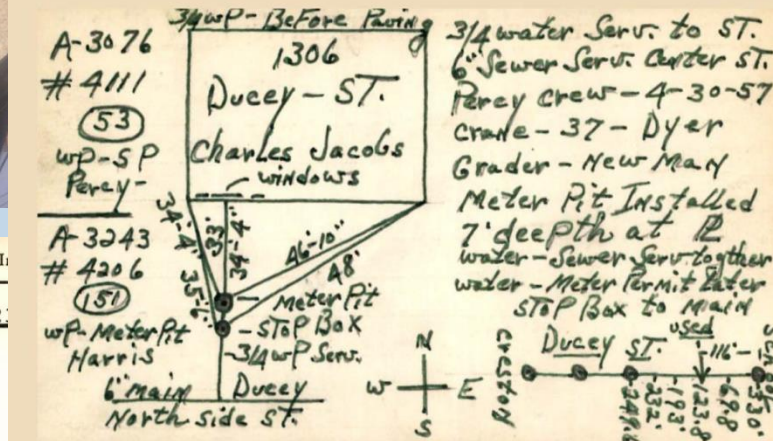 3/4 wP - Before Paving
A-3076
# 4111
53
wP-SP
Percy-
A-3243
# 4206
151
wP-Meter Pit
Harris
1306
Ducey - ST.
Charles Jacobs
windows
34'-4"
35'-6"
33'
34'-4"
46'-10"
48'
Meter Pit
- STOP BOX
-3/4 wP Serv.
6" main Ducey
North side ST.
N
W E
S
3/4 water Serv. to ST.
6" Sewer Serv. Center ST.
Percy Crew - 4-30-57
Crane - 37 - Dyer
Grader - New Man
Meter Pit Installed
7' deepth at PL
water-Sewer Serv togther
water-Meter Permit Later
STOP Box to Main
Ducey ST.
used
-116'-
Creston
-232'
-193'
-123.8
-69.8
-330'